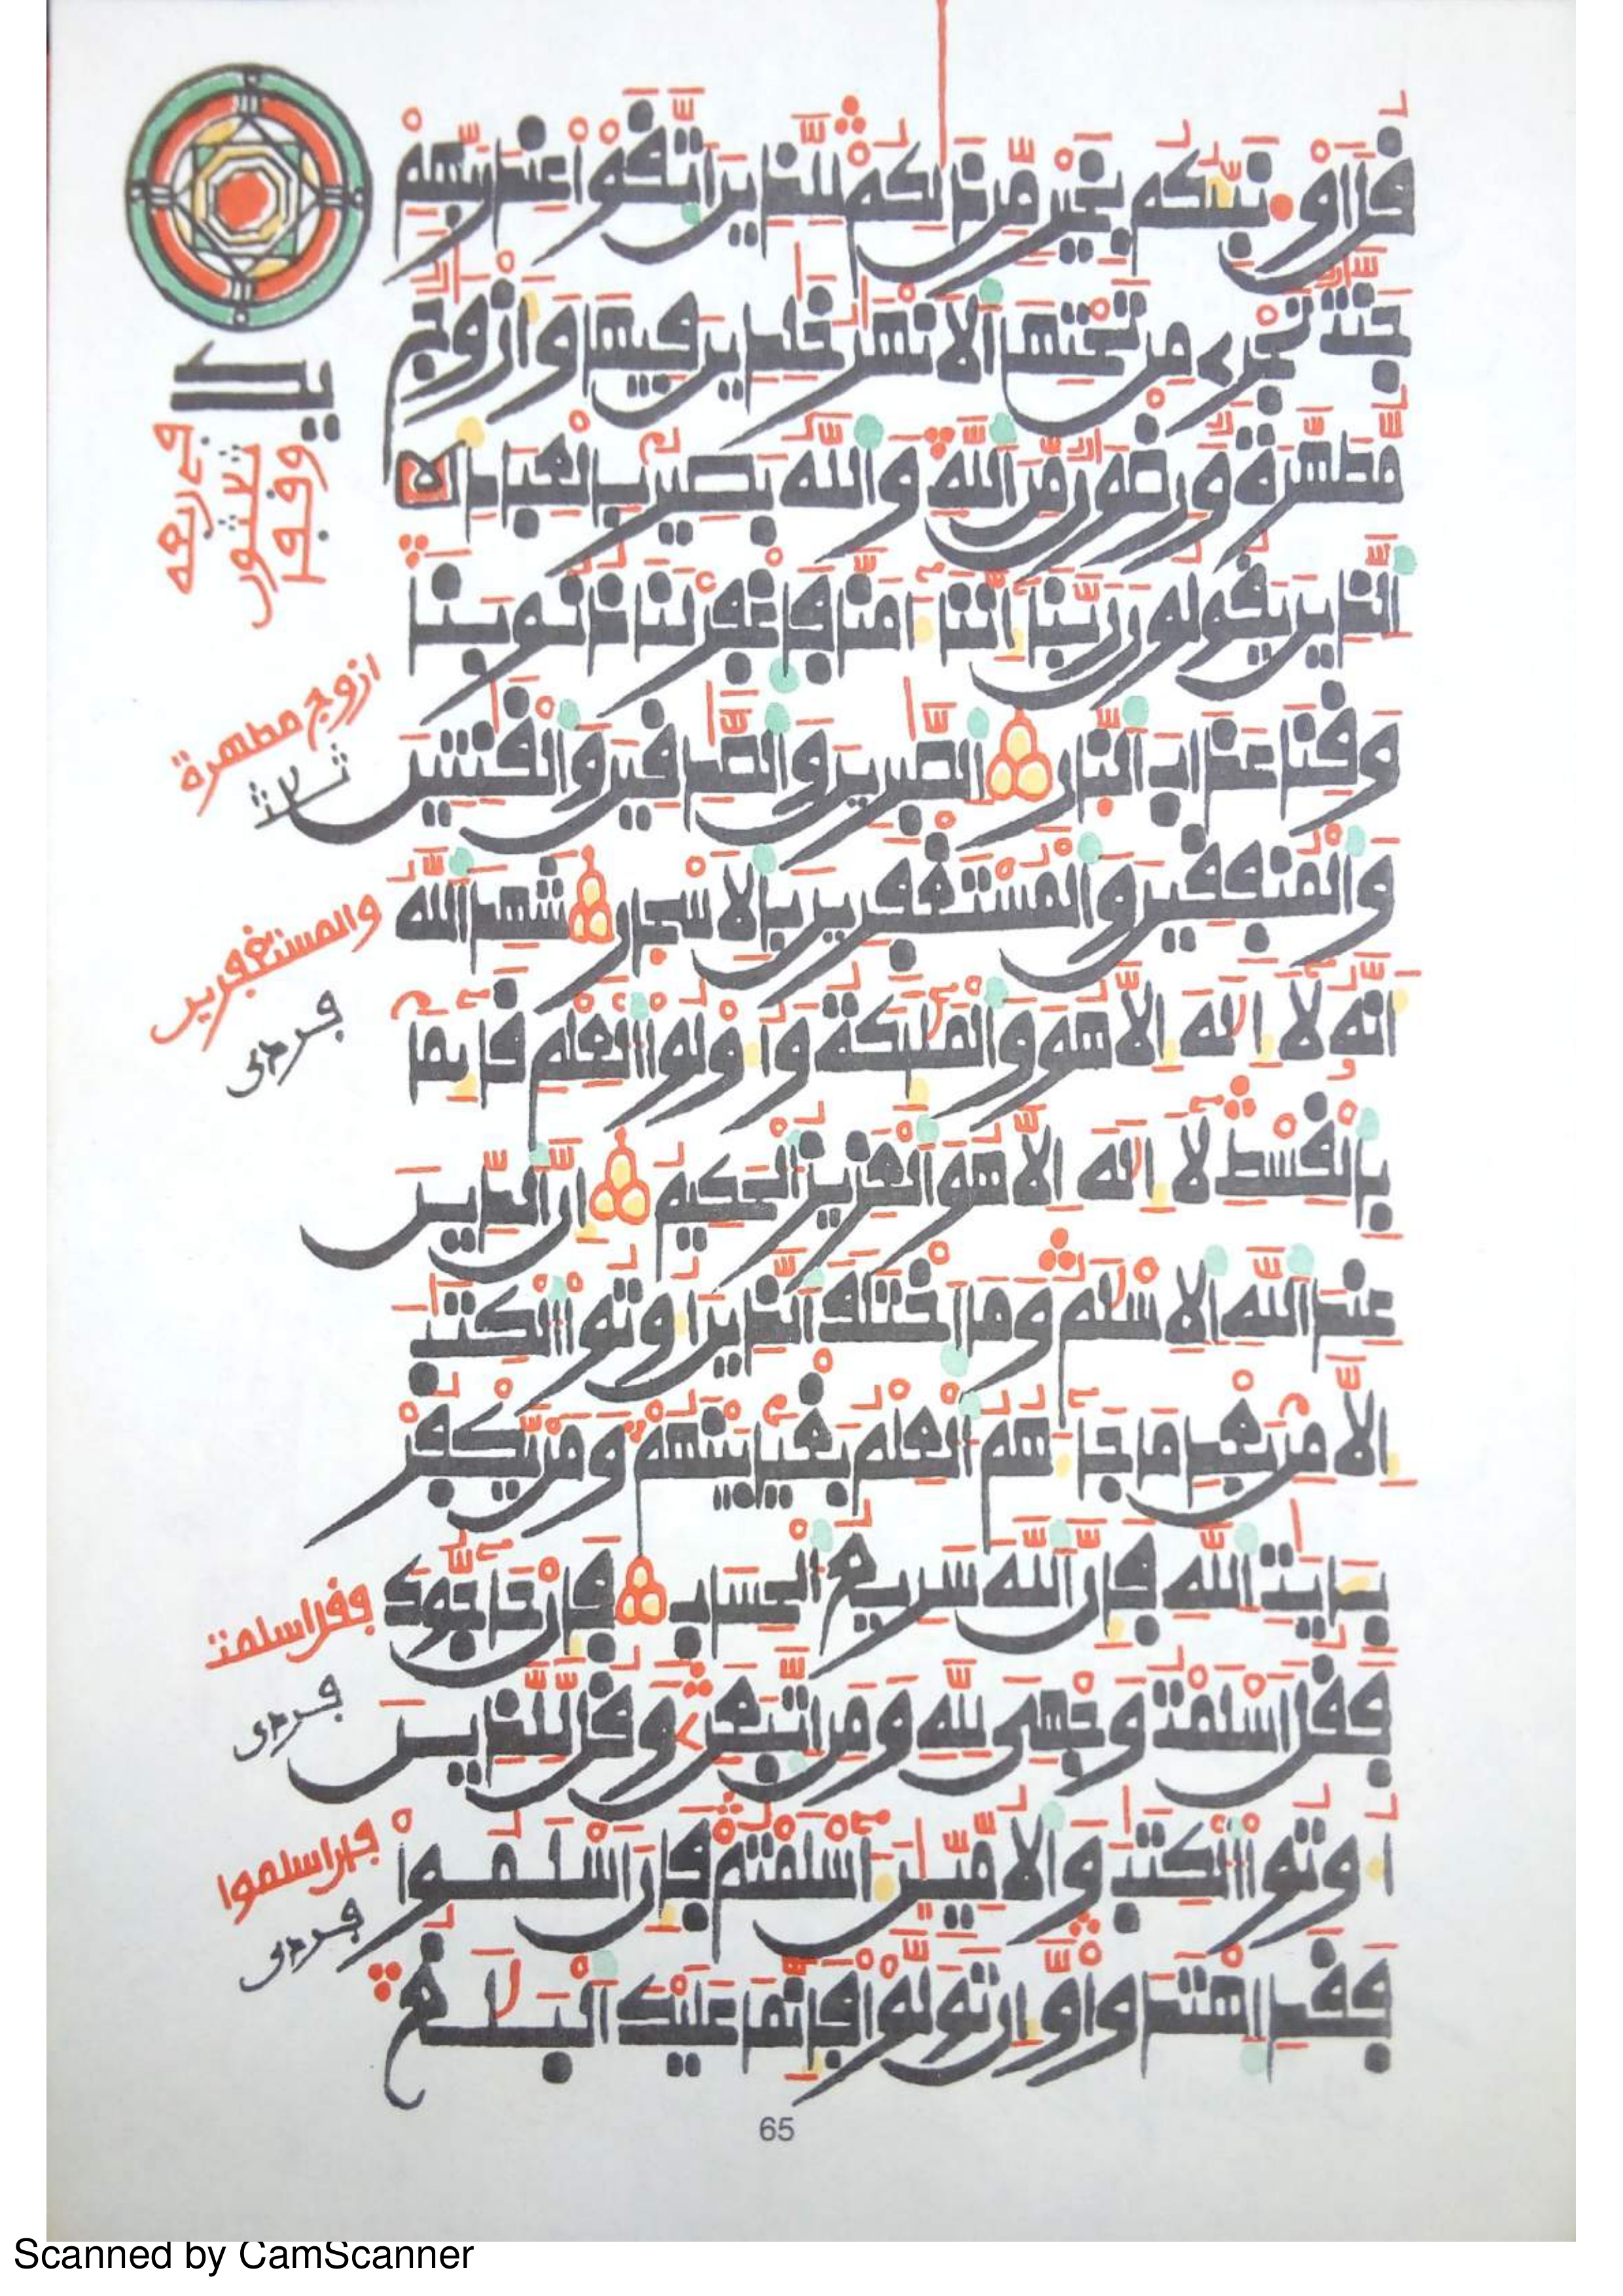 قل اؤنبئكم بخير من ذلكم للذين اتقوا عند ربهم
جنت تجرے من تحتها الانهر خلدين فيها وازوج
مطهرة ورضون من الله والله بصير بالعباد
الذين يقولون ربنا اننا ءامنا فاغفر لنا ذنوبنا
وقنا عذاب النار الصبرين والصدقين والقنتين
والمنفقين والمستغفرين بالاسحار شهد الله
انه لا اله الا هو والملئكة واولوا العلم قائما
بالقسط لا اله الا هو العزيز الحكيم ان الدين
عند الله الاسلم وما اختلف الذين اوتوا الكتب
الا من بعد ما جاءهم العلم بغيا بينهم ومن يكفر
بـايت الله فان الله سريع الحساب فان حاجوك
فقل اسلمت وجهى لله ومن اتبعن وقل للذين
اوتوا الكتب والامين ءاسلمتم فان اسلموا
فقد اهتدوا وان تولوا فانما عليك البلغ
يد
ازوج مطهرة
ثلاث
والمستغفرين
فردى
فقل اسلمت
فردى
فإن اسلموا
فردى
65
Scanned by CamScanner